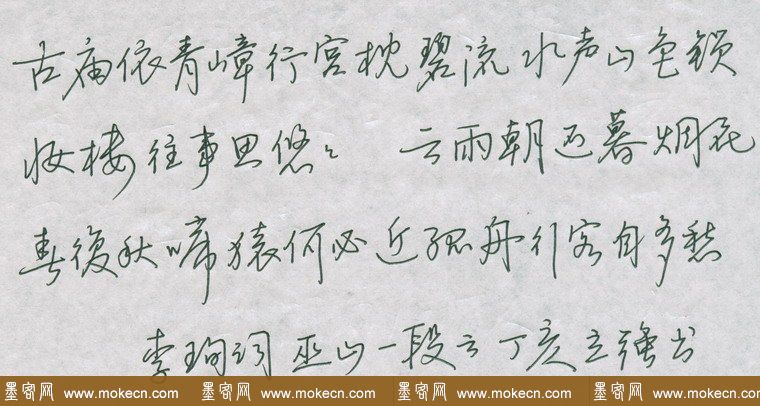 古庙依青嶂行宫枕碧流水声山色锁
妆楼往事思悠々 云雨朝还暮烟花
春復秋啼猿何必近孤舟行客自多愁
李珣词 巫山一段云 丁亥立强书
墨客网 www.mokecn.com 墨客网 www.mokecn.com 墨客网 www.mokecn.com 墨客网 www.mokecn.com